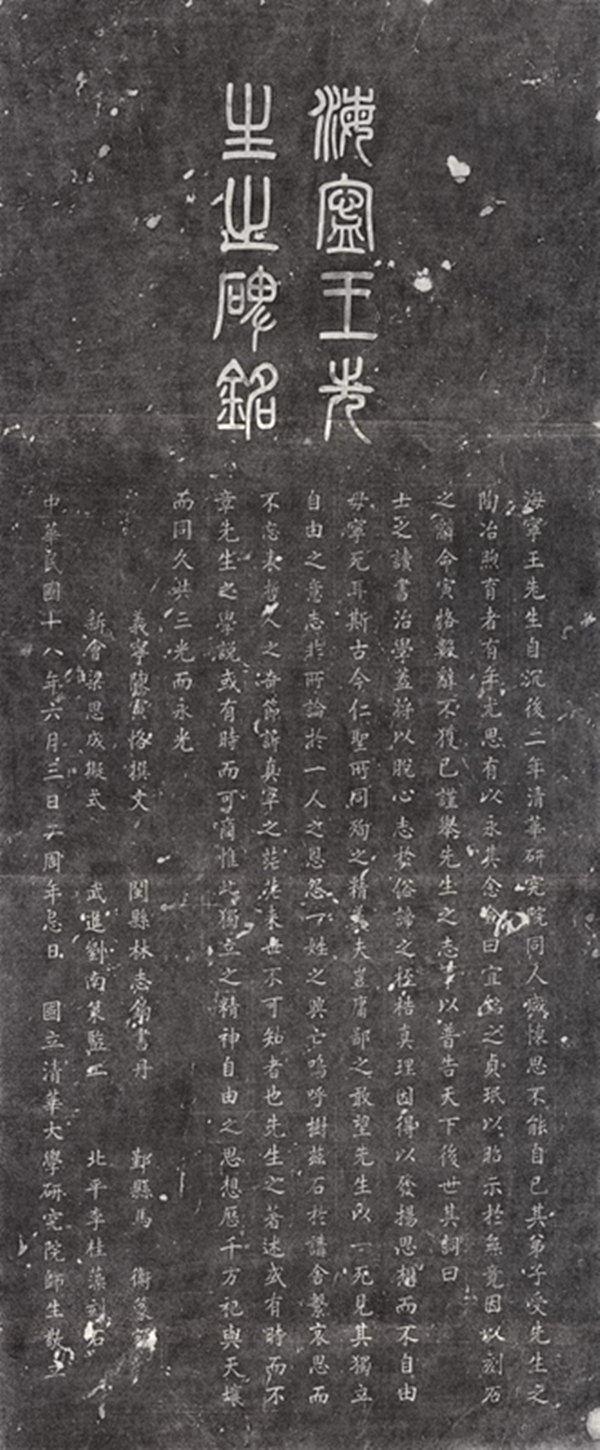 海寧王先
生之碑銘
海寧王先生自沉後二年清華研究院同人咸懷思不能自已其弟子受先生之
陶冶煦育者有年尤思有以永其念僉曰宜銘之貞珉以昭示於無竟因以刻石
之辭命寅恪數辭不獲已謹舉先生之志事以普告天下後世其詞曰
士之讀書治學蓋將以脫心志於俗諦之桎梏真理因得以發揚思想而不自由
毋寧死耳斯古今仁聖所同殉之精義夫豈庸鄙之敢望先生以一死見其獨立
自由之意志非所論於一人之恩怨一姓之興亡嗚呼樹茲石於講舍繫哀思而
不忘表哲人之奇節訴真宰之茫茫來世不可知者也先生之著述或有時而不
章先生之學說或有時而可商惟此獨立之精神自由之思想歷千万祀與天壤
而同久共三光而永光
義寧陳寅恪撰文　閩縣林志鈞書丹　鄞縣馬衡篆額
新會梁思成擬式　武進劉南策監工　北平李桂藻刻石
中華民國十八年六月三日二周年忌日　國立清華大學研究院師生敬立